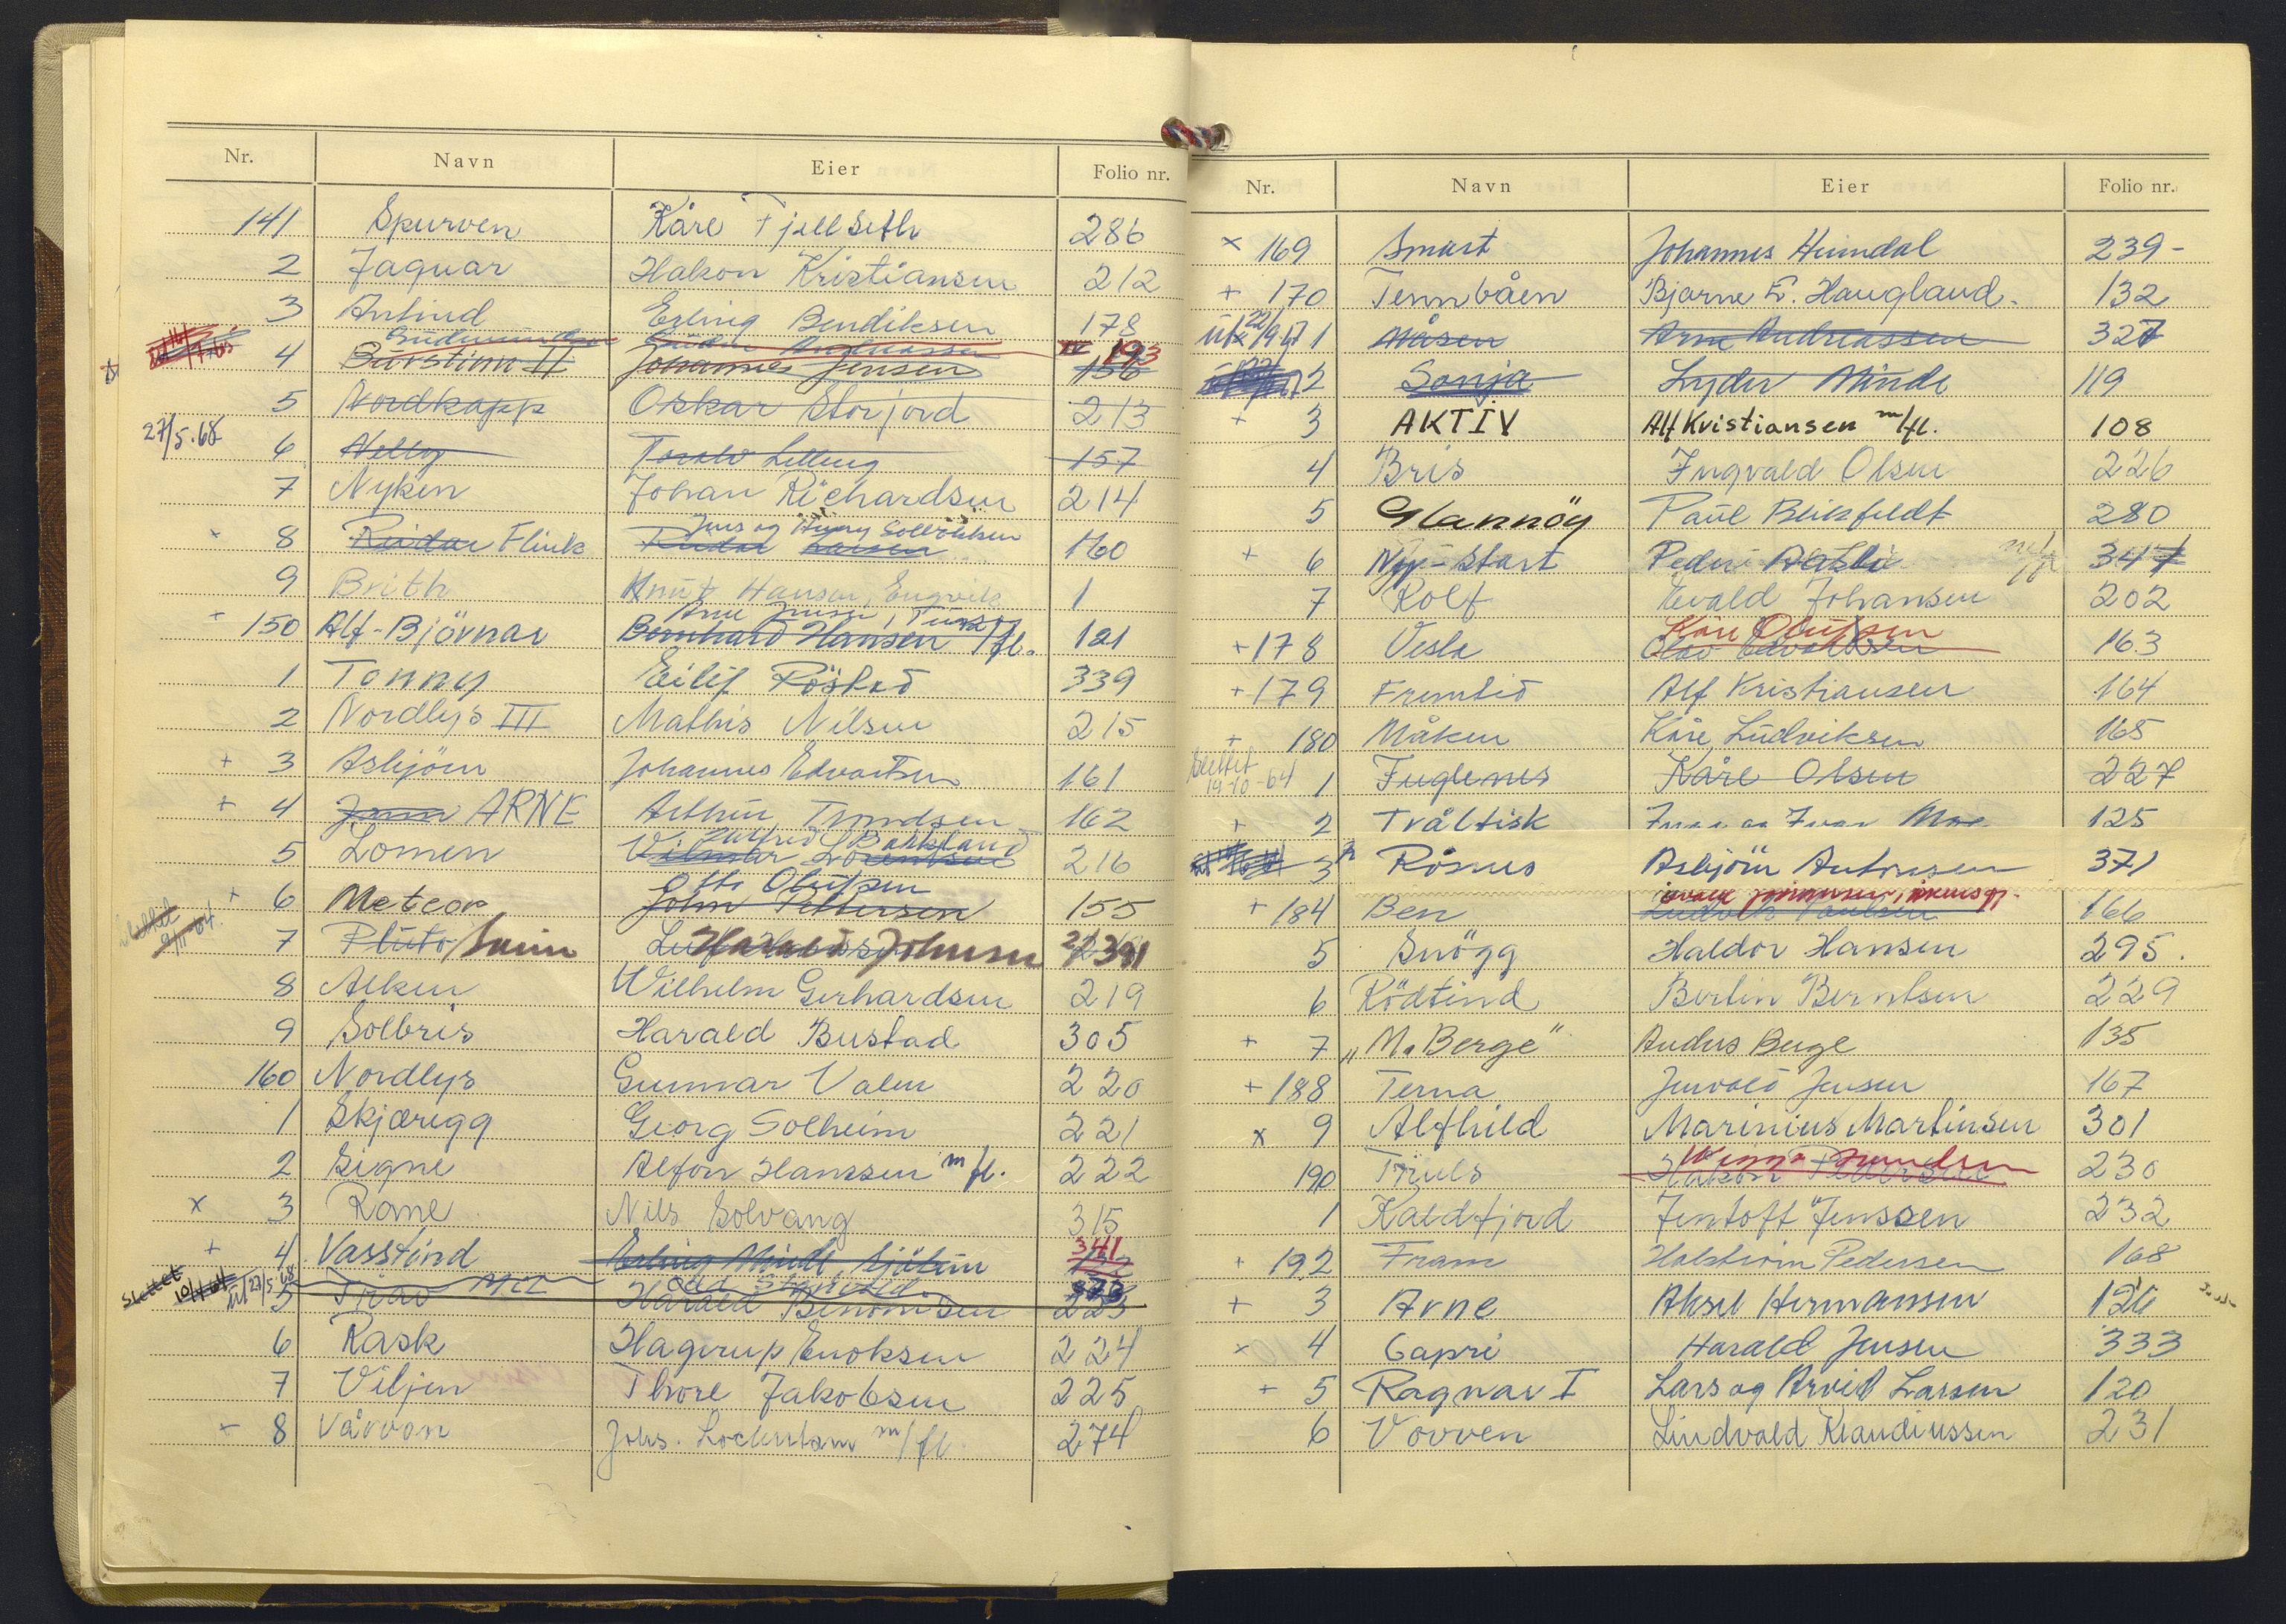 Nr. Navn Eier Folio nr.
141 Spurven Kåre Fjellseth 286
2 Jaguar Hakon Kristiansen 212
3 Antind Erling Bendiksen 178
4 Burstinn II Johannes Jensen 156 193
5 Nordkapp Oskar Storjord 213
27/5.68 6 Nelly 157
7 Nyken Johan Richardsen 214
Jens og
+ 8 Reidar Flink Reidar Larsen 160
9 Brith Knut Hansen, Engvik 1
Arne Jensen
+ 150 Alf-Björnar Bernhard Hansen m/fl. 121
1 Tonny Eilif Röstad 339
2 Nordlys III Mathis Nilsen 215
+ 3 Asbjörn Johannes Edvartsen 161
+ 4 ARNE Arthur Trondsen 162
5 Lomen Vilmar Lorentsen 216
Otto Olufsen
+ 6 Meteor John Pettersen 155
7 Pluto Harald Johnsen 391
8 Alken Wilhelm Gerhardsen 219
9 Solbris Harald Bustad 305
160 Nordlys Gunnar Valen 220
1 Skjæregg Georg Solheim 221
2 Signe Alfon Hanssen m/fl. 222
x 3 Rane Nils Solvang 315
341
+ 4 Vasstind Erling Minde
Slettet 5 Trav Harald Benonisen 223
6 Rask Hagerup Enoksen 224
7 Viljen Thore Jakobsen 225
+ 8 Vårvon Johs. m/fl. 274
Nr. Navn Eier Folio nr.
x 169 Smart Johannes Heimdal 239-
+ 170 Tennbåen Bjarne E. Haugland. 132
1 Måsen Arne Andreassen 327
2 Sonja Lyder Minde 119
+ 3 AKTIV Alf Kristiansen m/fl. 108
4 Bris Ingvald Olsen 226
5 Glannöy Paul Bliksfeldt 280
+ 6 Ny-Start Peder 347
7 Rolf Evald Johansen 202
Kåre Olufsen
+ 178 Vesla Olav Edvardsen 163
+ 179 Fremtid Alf Kristiansen 164
+ 180 Måken Kåre Ludviksen 165
Slettet
19-10-64 1 Fuglenes Kåre Olsen 227
+ 2 Tvåltisk Inga og Ivar Moe 125
3 Rösnes Asbjörn Antonsen 371
+ 184 Ben Ludvik Paulsen 166
5 Snögg Haldor Hansen 295.
6 Rödtind Bertin Berntsen 229
+ 7 „M. Berge" Anders Berge 135
+ 188 Terna Jenvald Jensen 167
x 9 Alfhild Marinius Martinsen 301
190 Truls Håkon Pedersen 230
1 Kaldfjord Jentoft Jenssen 232
+ 192 Fram Halstein Pedersen 168
+ 3 Arne Aksel Hermansen 126
x 4 Capri Harald Jensen 333
+ 5 Ragnar I Lars og Arvid Larsen 120
6 Vovven Lindvald Klaudiussen 231